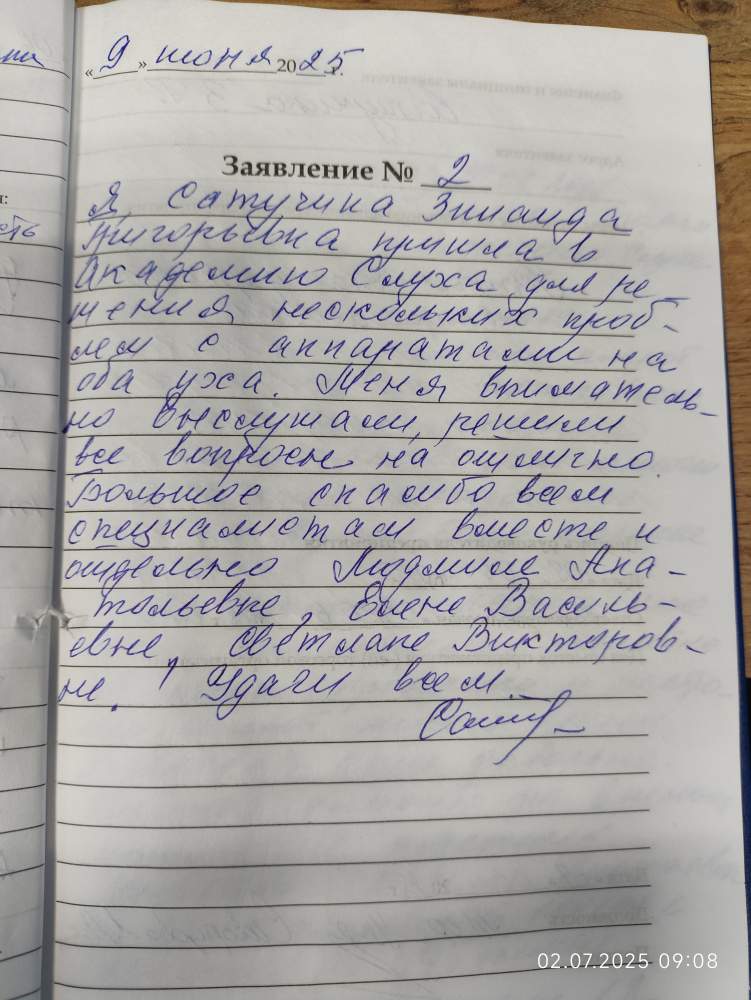 « 9 » июня 2025 г.
Заявление № 2
Я, Сатучина Зинаида
Григорьевна пришла в
Академию Слуха для ре-
шения нескольких проб-
лем с аппаратами на
оба уха. Меня вниматель-
но выслушали, решили
все вопросы на отлично.
Большое спасибо всем
специалистам вместе и
отдельно Людмиле Ана-
тольевне, Елене Василь-
евне, Светлане Викторов-
не. Удачи всем.
02.07.2025 09:08